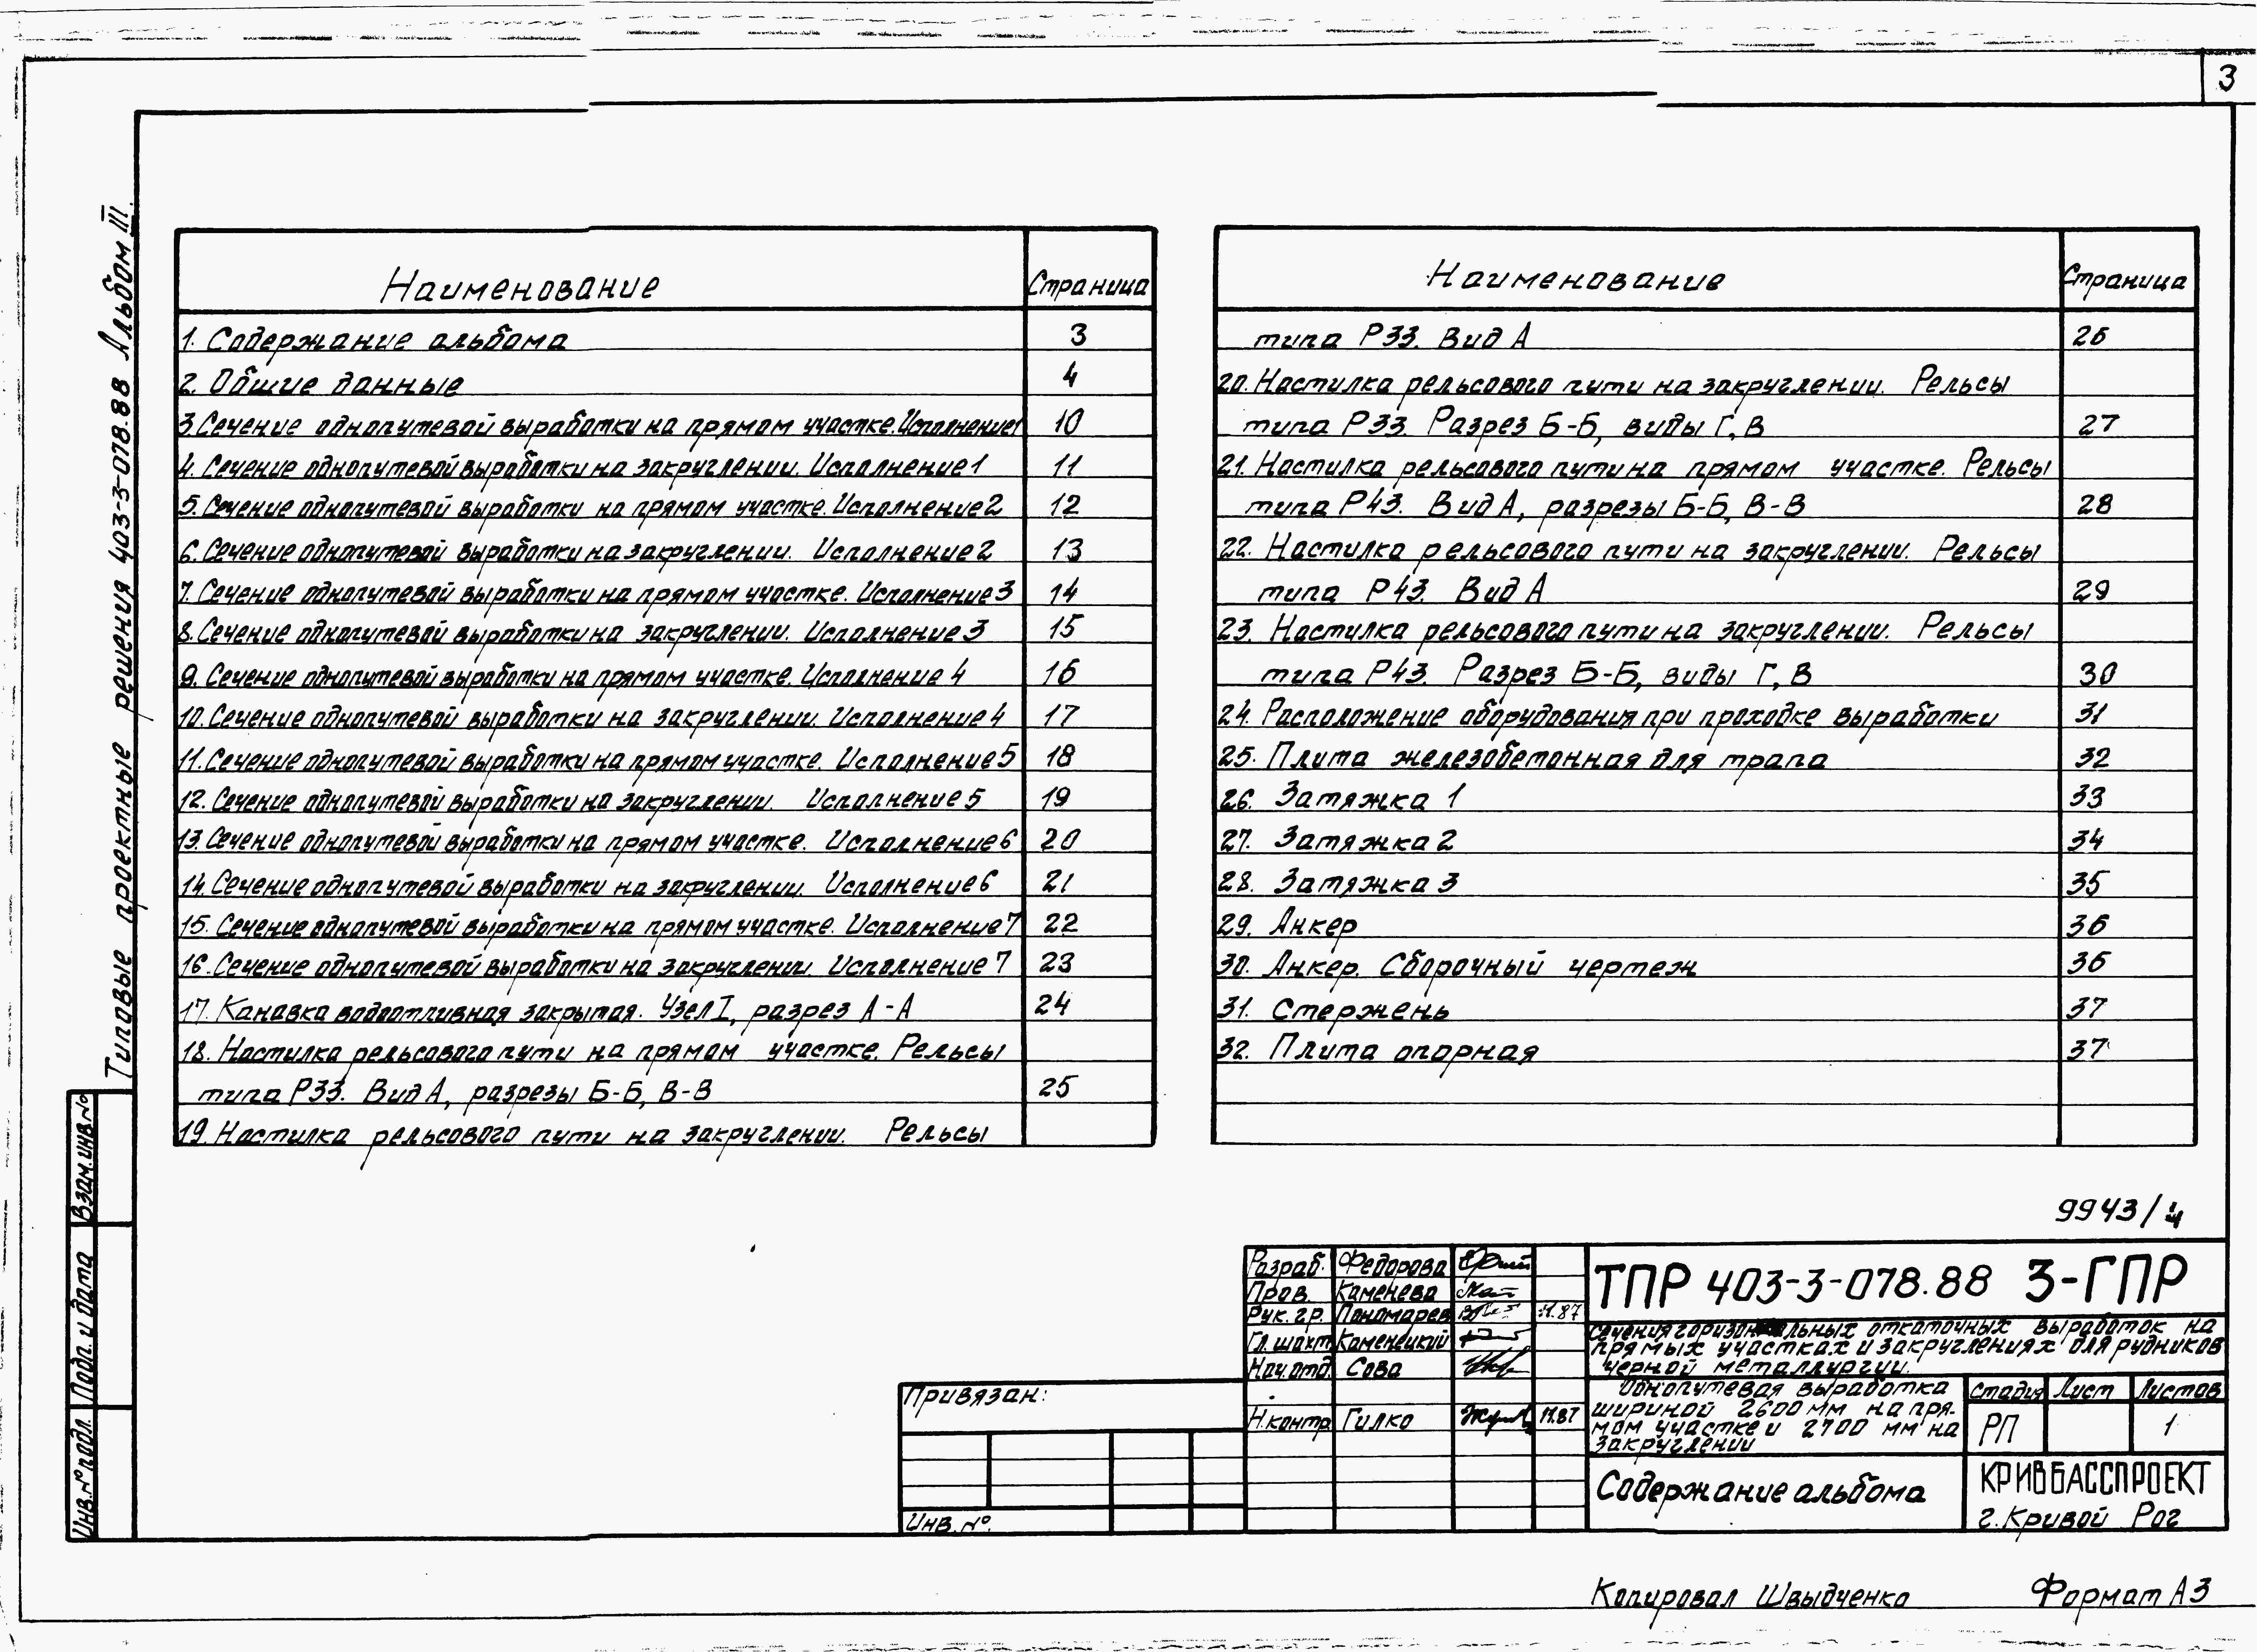 3
Типовые проектные решения 403-3-078.88 Альбом III.
Наименование Страница
1. Содержание альбома 3
2. Общие данные 4
3. Сечение однопутевой выработки на прямом участке. Исполнение 1 10
4. Сечение однопутевой выработки на закруглении. Исполнение 1 11
5. Сечение однопутевой выработки на прямом участке. Исполнение 2 12
6. Сечение однопутевой выработки на закруглении. Исполнение 2 13
7. Сечение однопутевой выработки на прямом участке. Исполнение 3 14
8. Сечение однопутевой выработки на закруглении. Исполнение 3 15
9. Сечение однопутевой выработки на прямом участке. Исполнение 4 16
10. Сечение однопутевой выработки на закруглении. Исполнение 4 17
11. Сечение однопутевой выработки на прямом участке. Исполнение 5 18
12. Сечение однопутевой выработки на закруглении. Исполнение 5 19
13. Сечение однопутевой выработки на прямом участке. Исполнение 6 20
14. Сечение однопутевой выработки на закруглении. Исполнение 6 21
15. Сечение однопутевой выработки на прямом участке. Исполнение 7 22
16. Сечение однопутевой выработки на закруглении. Исполнение 7 23
17. Канавка водоотливная закрытая. Узел I, разрез А-А 24
18. Настилка рельсового пути на прямом участке. Рельсы
типа Р33. Вид А, разрезы Б-Б, В-В 25
19. Настилка рельсового пути на закруглении. Рельсы
Наименование Страница
типа Р33. Вид А 26
20. Настилка рельсового пути на закруглении. Рельсы
типа Р33. Разрез Б-Б, виды Г, В 27
21. Настилка рельсового пути на прямом участке. Рельсы
типа Р43. Вид А, разрезы Б-Б, В-В 28
22. Настилка рельсового пути на закруглении. Рельсы
типа Р43. Вид А 29
23. Настилка рельсового пути на закруглении. Рельсы
типа Р43. Разрез Б-Б, виды Г, В 30
24. Расположение оборудования при проходке выработки 31
25. Плита железобетонная для трапа 32
26. Затяжка 1 33
27. Затяжка 2 34
28. Затяжка 3 35
29. Анкер 36
30. Анкер. Сборочный чертеж 36
31. Стержень 37
32. Плита опорная 37
Взам. инв. №
Подп. и дата
Инв. № подл.
9943/4
Разраб. Федорова
Пров. Каменева
Рук. гр. Пономарев 11.87
Гл. шахт. Каменецкий
Нач. отд. Сова
Н. контр. Гилко 11.87
Привязан:
Инв. №.
ТПР 403-3-078.88 3-ГПР
Сечения горизонтальных откаточных выработок на
прямых участках и закруглениях для рудников
черной металлургии.
Однопутевая выработка
шириной 2600 мм на пря-
мом участке и 2700 мм на
закруглении
Стадия Лист Листов
РП 1
Содержание альбома
КРИВБАССПРОЕКТ
г. Кривой Рог
Копировал Швыдченко Формат А3